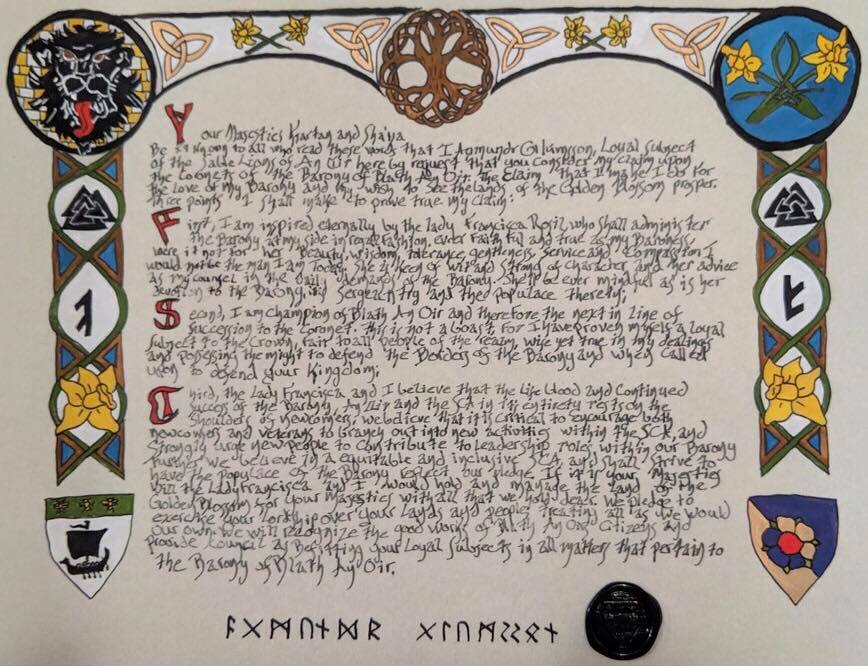 Your Majesties Kjartan and Sha'ya
Be it known to all who read these words that I Agmundr Glúmsson, Loyal subject
of the Sable Lions of An Tir hereby request that you consider my claim upon
the Coronets of the Barony of Blath An Oir. The Claim that I make I do for
the love of my Barony and my wish to see the lands of the Golden Blossom prosper.
Three points I shall make to prove true my claim:
First, I am inspired eternally by the lady Francisca Rosil who shall administer
the Barony at my side in regal fashion, ever faithful and true as my Baroness.
were it not for her Beauty, wisdom, tolerance, gentleness, service and Compassion I
would not be the man I am Today. She is keen of wit and strong of character and her advice
as my counsel in the daily demands of the Barony. She'll be ever mindful as is her
devotion to the Barony, its Sergeantry and the Populace thereby;
Second, I am Champion of Blath An Oir and therefore the next in line of
succession to the Coronet. This is not a boast for I have proven myself a loyal
Subject to the Crown, fair to all people of the realm, wise yet true in my dealings
and possessing the might to defend the Borders of the Barony and when called
upon to defend your Kingdom;
Third, the Lady Francisca and I believe that the Life blood and Continued
success of the Barony, An Tir and the SCA in its entirety rests on the
shoulders of newcomers; we believe that it is critical to encourage both
newcomers and veterans to branch out into new activities within the SCA, and
Strongly urge new people to contribute to leadership roles within our Barony
Further we believe in a equitable and inclusive SCA and shall strive to
have the Populace of the Barony reflect our pledge. If it is your Majesties
will the Lady Francisca and I would hold and manage the Land of the
Golden Blossom for your Majesties with all that we hold dear. We pledge to
exercise your Lordship over your Lands and people treating all as we would
our own. We will recognize the good works of Blath An Oirs Citizens and
Provide Council as Befitting your Loyal Subjects in all matters that pertain to
the Barony of Blath An Oir.
ᚨᚷᛗᚢᚾᛞᚱ ᚷᛚᚢᛗᛊᛊᛟᚾ